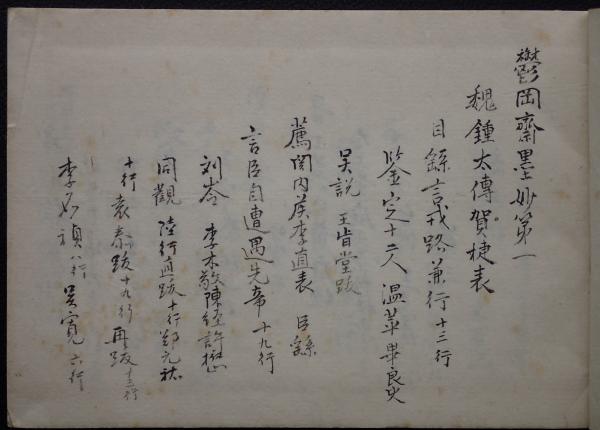 鬱岡齋墨妙第一
魏鍾太傅賀捷表
臣繇言戎路兼行十三行
鑒定十二人 溫革 畢良史
吳說 王肯堂跋
薦関内矦季直表 臣繇
言臣自遭遇先帝 十九行
刘岑 李木敬 陳經 許樾
同觀 陸行直跋十行 鄭元祐
十行 袁泰跋十九行 再跋十三行
李應禎八行 吳寬六行